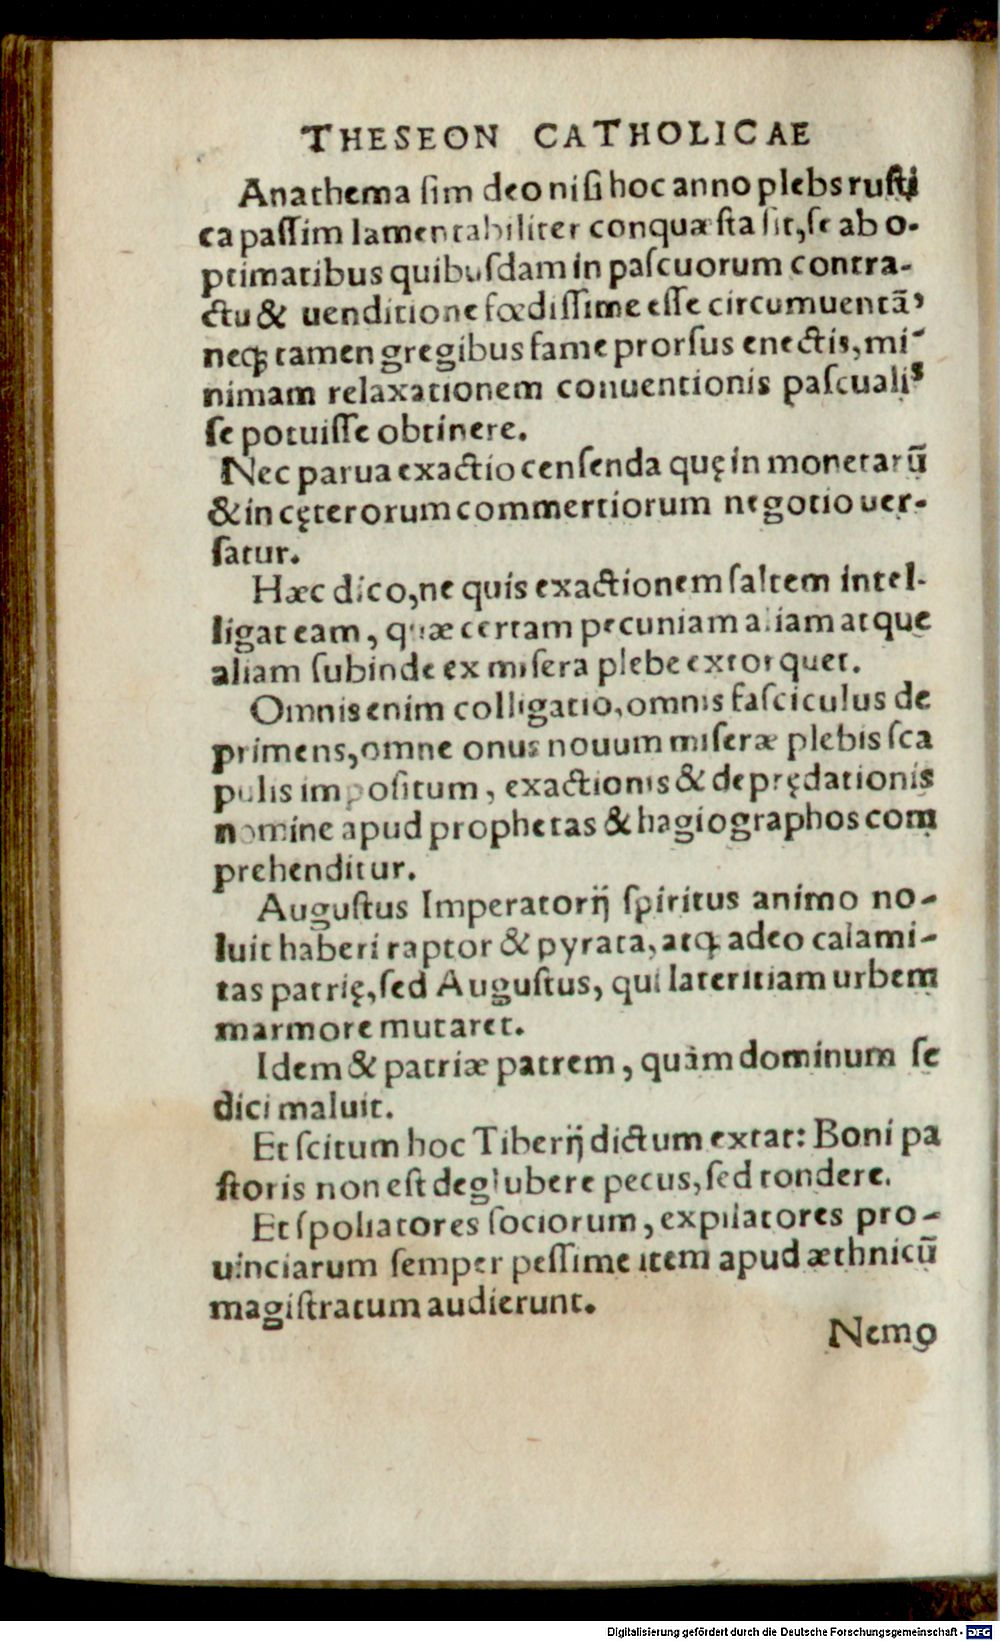 THESEON CATHOLICAE
Anathema sim deo nisi hoc anno plebs rusti
ca passim lamentabiliter conquæsta sit, se ab o-
ptimatibus quibusdam in pascuorum contra-
ctu & uenditione fœdissime esse circumuentã,
neqꝫ tamen gregibus fame prorsus enectis, mi-
nimam relaxationem conuentionis pascualis
se potuisse obtinere.
Nec parua exactio censenda quę in monetarũ
& in cęterorum commertiorum negotio uer-
satur.
Hæc dico, ne quis exactionem saltem intel-
ligat eam, quæ certam pecuniam aliam atque
aliam subinde ex misera plebe extorquet.
Omnis enim colligatio, omnis fasciculus de
primens, omne onus nouum miseræ plebis sca
pulis impositum, exactionis & deprędationis
nomine apud prophetas & hagiographos com
prehenditur.
Augustus Imperatorij spiritus animo no-
luit haberi raptor & pyrata, atqꝫ adeo calami-
tas patrię, sed Augustus, qui lateritiam urbem
marmore mutaret.
Idem & patriæ patrem, quàm dominum se
dici maluit.
Et scitum hoc Tiberij dictum extat: Boni pa
storis non est deglubere pecus, sed tondere.
Et spoliatores sociorum, expilatores pro-
uinciarum semper pessime item apud æthnicũ
magistratum audierunt.
Nemo
Digitalisierung gefördert durch die Deutsche Forschungsgemeinschaft - DFG